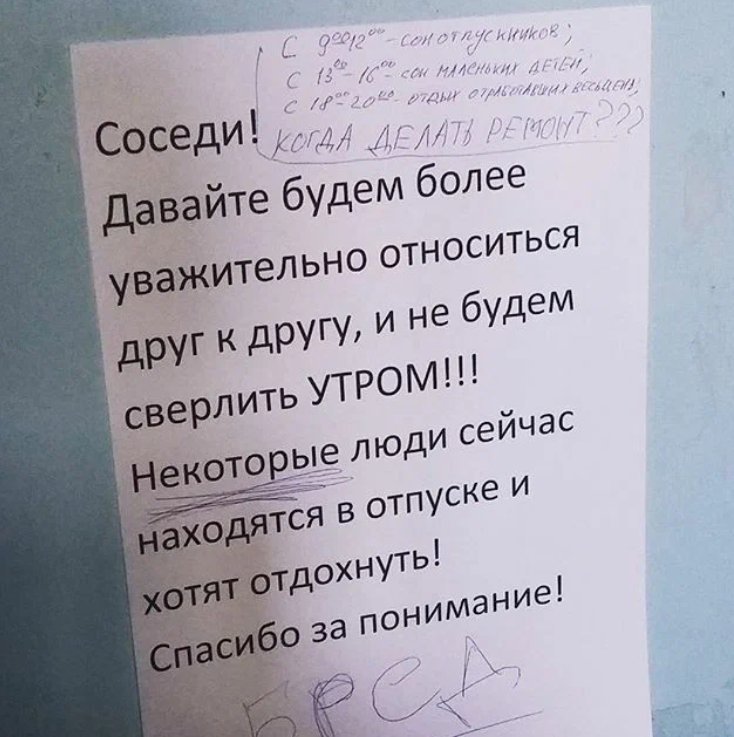 С 9⁰⁰12⁰⁰ - сон отпускников;
С 13⁰⁰- 16⁰⁰- сон маленьких детей;
С 18⁰⁰- 20⁰⁰- отдых отработавших весь день;
КОГДА ДЕЛАТЬ РЕМОНТ???
Соседи!
Давайте будем более
уважительно относиться
друг к другу, и не будем
сверлить УТРОМ!!!
Некоторые люди сейчас
находятся в отпуске и
хотят отдохнуть!
Спасибо за понимание!
БРЕД